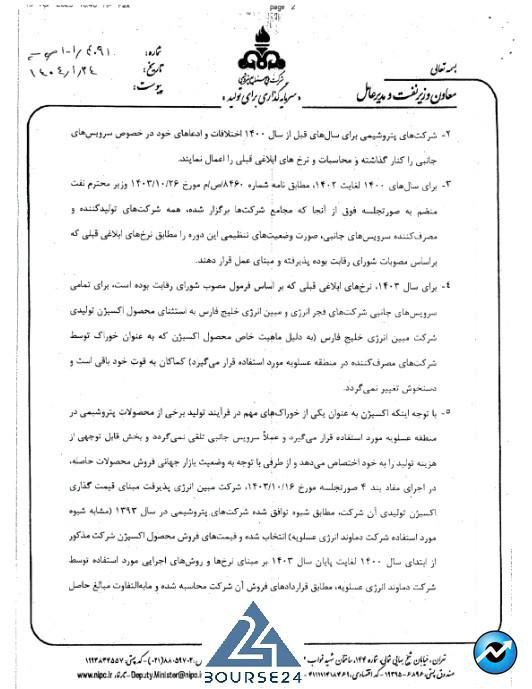 page 2
بسمه تعالی
شماره:
تاریخ: ۱۴۰۴/۱/۲۴
پیوست:
معاون وزیر نفت و مدیرعامل
« سرمایه‌گذاری برای تولید »
۲- شرکت‌های پتروشیمی برای سال‌های قبل از سال ۱۴۰۰ اختلافات و ادعاهای خود در خصوص سرویس‌های
جانبی را کنار گذاشته و محاسبات و نرخ های ابلاغی قبلی را اعمال نمایند.
۳- برای سال‌های ۱۴۰۰ لغایت ۱۴۰۲، مطابق نامه شماره ۸۴۶۰/ص/م مورخ ۱۴۰۳/۱۰/۲۶ وزیر محترم نفت
منضم به صورتجلسه فوق از آنجا که مجامع شرکت‌ها برگزار شده، همه شرکت‌های تولیدکننده و
مصرف‌کننده سرویس‌های جانبی، صورت وضعیت‌های تنظیمی این دوره را مطابق نرخ‌های ابلاغی قبلی که
براساس مصوبات شورای رقابت بوده پذیرفته و مبنای عمل قرار دهند.
۴- برای سال ۱۴۰۳، نرخ‌های ابلاغی قبلی که بر اساس فرمول مصوب شورای رقابت بوده است، برای تمامی
سرویس‌های جانبی شرکت‌های فجر انرژی و مبین انرژی خلیج فارس به استثنای محصول اکسیژن تولیدی
شرکت مبین انرژی خلیج فارس (به دلیل ماهیت خاص محصول اکسیژن که به عنوان خوراک توسط
شرکت‌های مصرف‌کننده در منطقه عسلویه مورد استفاده قرار می‌گیرد) کماکان به قوت خود باقی است و
دستخوش تغییر نمی‌گردد.
۵- با توجه اینکه اکسیژن به عنوان یکی از خوراک‌های مهم در فرآیند تولید برخی از محصولات پتروشیمی در
منطقه عسلویه مورد استفاده قرار می‌گیرد و عملاً سرویس جانبی تلقی نمی‌گردد و بخش قابل توجهی از
هزینه تولید را به خود اختصاص می‌دهد و از طرفی با توجه به وضعیت بازار جهانی فروش محصولات حاصله،
در اجرای مفاد بند ۴ صورتجلسه مورخ ۱۴۰۳/۱۰/۱۶، شرکت مبین انرژی پذیرفت مبنای قیمت گذاری
اکسیژن تولیدی آن شرکت، مطابق شیوه توافق شده شرکت‌های پتروشیمی در سال ۱۳۹۳ (مشابه شیوه
مورد استفاده شرکت دماوند انرژی عسلویه) انتخاب شده و قیمت‌های فروش محصول اکسیژن شرکت مذکور
از ابتدای سال ۱۴۰۰ لغایت پایان سال ۱۴۰۳ بر مبنای نرخ‌ها و روش‌های اجرایی مورد استفاده توسط
شرکت دماوند انرژی عسلویه، مطابق قراردادهای فروش آن شرکت محاسبه شده و مابه‌التفاوت مبالغ حاصل
تهران، خیابان شیخ بهایی شمالی، شماره ۱۴۴، ساختمان شهید تندگویان
(۰۲۱) - کد پستی: ۱۹۹۳۸۳۴۵۵۷
صندوق پستی: ۶۸۹۶-۱۹۳۹۵
www.nipc.ir
Deputy.Minister@nipc.i
24
BOURSE24